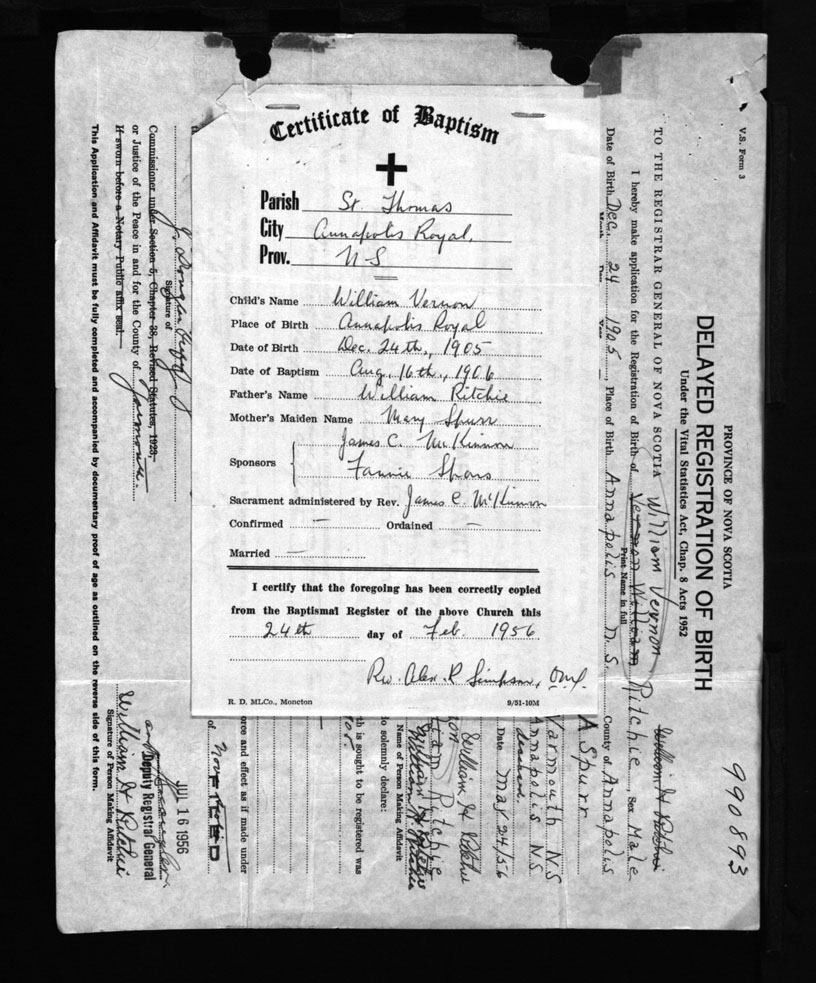 Certificate of Baptism
Parish St. Thomas
City Annapolis Royal,
Prov. N S
Child's Name William Vernon
Place of Birth Annapolis Royal
Date of Birth Dec. 24th, 1905
Date of Baptism Aug. 16th, 1906
Father's Name William Ritchie
Mother's Maiden Name Mary Spurr
James C. McKinnon
Sponsors Fannie
Sacrament administered by Rev. James C. McKinnon
Confirmed — Ordained —
Married —
I certify that the foregoing has been correctly copied
from the Baptismal Register of the above Church this
24th day of Feb. 1956
Rev. Alex. R Simpson,
R. D. MLCo., Moncton 9/51-10M
V.S. Form 3
PROVINCE OF NOVA SCOTIA
DELAYED REGISTRATION OF BIRTH
Under the Vital Statistics Act, Chap. 8 Acts 1952
990893
TO THE REGISTRAR GENERAL OF NOVA SCOTIA
William Vernon William H Ritchie
I hereby make application for the Registration of Birth of Vernon William Ritchie, Sex Male
Print Name in full
Date of Birth Dec. 24 1905, Place of Birth Annapolis N.S. County of Annapolis
A Spurr
Yarmouth N.S
Annapolis N.S.
deceased.
Date May 24/56
William H Ritchie
iam Ritchie
William H Ritchie
Name of Person Making Affidavit
to solemnly declare:
th is sought to be registered was
orce and effect as if made under
of
J. Douglas
Signature of
Commissioner under Section 5, Chapter 38, Revised Statutes, 1923,
or Justice of the Peace in and for the County of Yarmouth.
If sworn before a Notary Public affix seal.
JUL 16 1956
Deputy Registrar General
William H Ritchie
Signature of Person Making Affidavit
This Application and Affidavit must be fully completed and accompanied by documentary proof of age as outlined on the reverse side of this form.